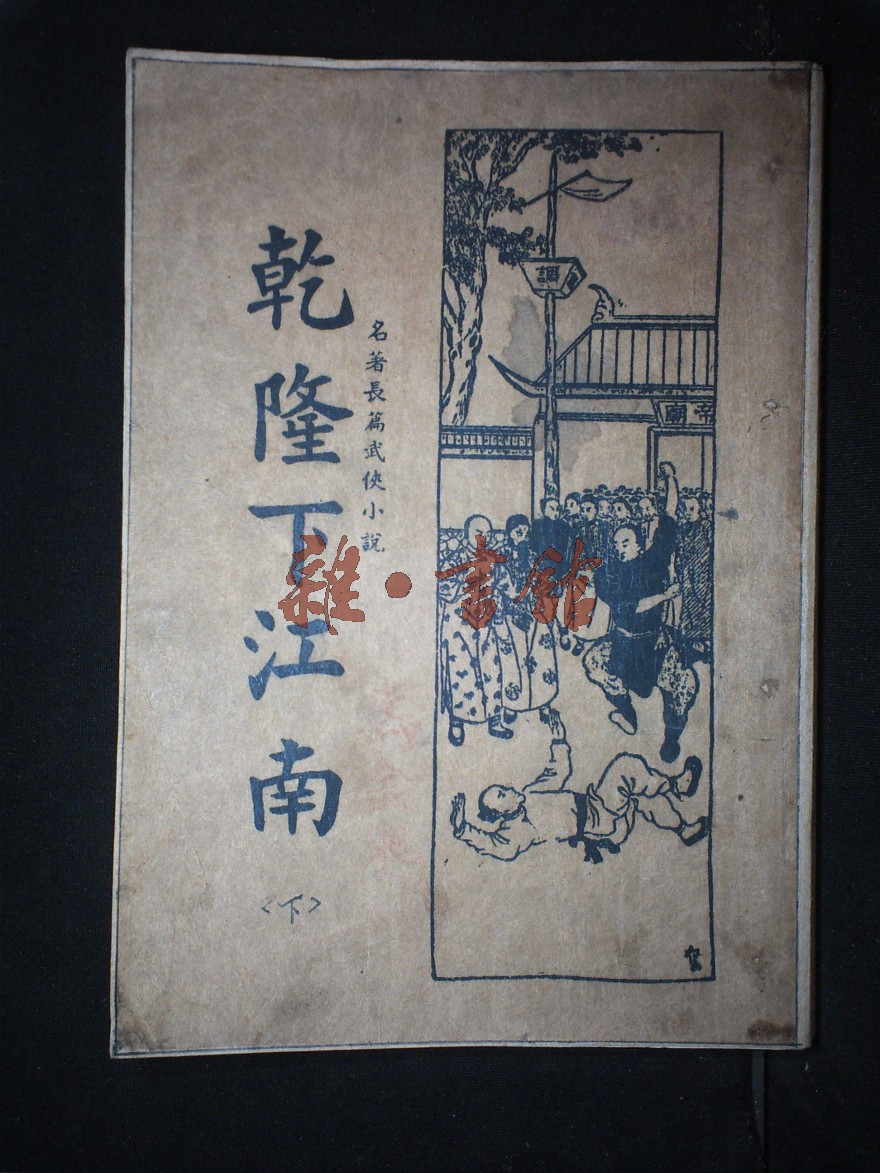 乾隆下江南
名著長篇武俠小說
<下>
調
帝廟
雜·書館